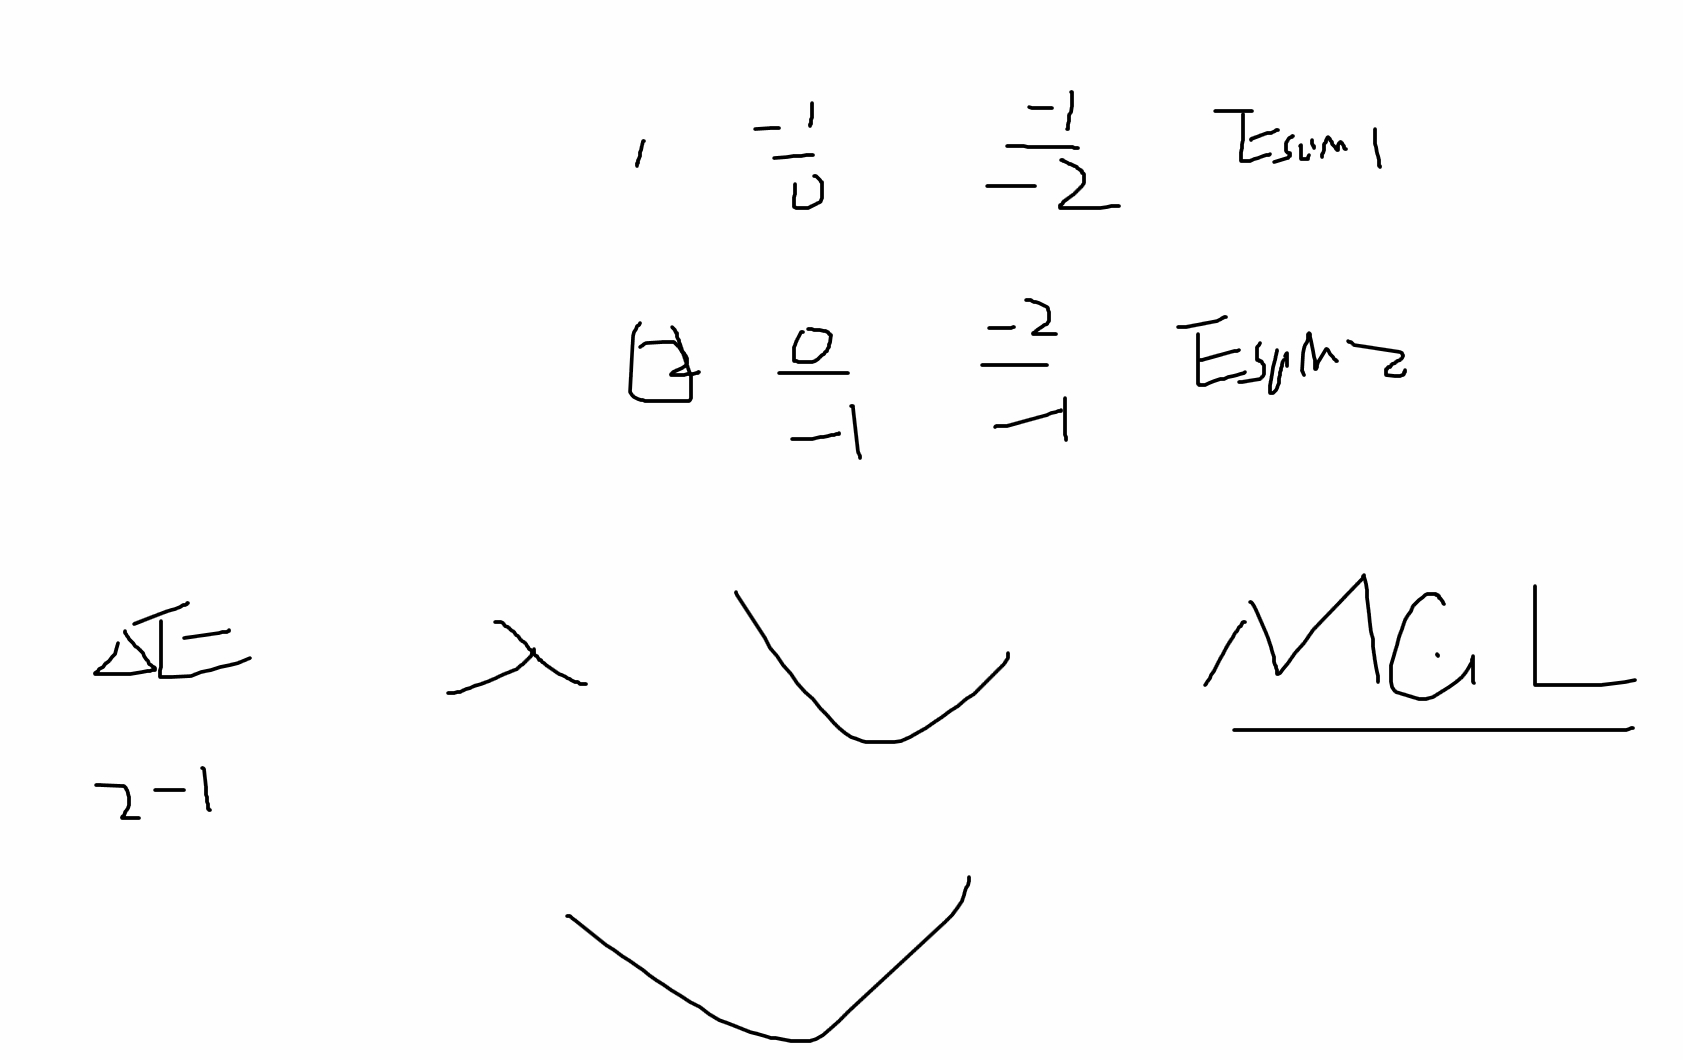 1 -1/0 -1/-2 Esum1
2 0/-1 -2/-1 Esum2
ΔE λ MGL
2-1